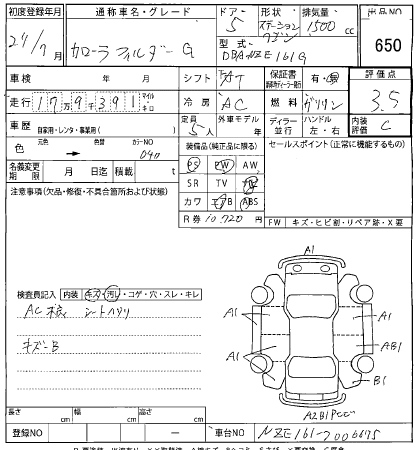 初度登録年月 通称車名・グレード ドア 形状 排気量 出品NO
24/7月 カローラフィルダー G 5 ステーションワゴン 1500cc 650
型式 DBA-NZE161G
車検 年 月 シフト AT 保証書 有・無 評価点
走行 179391 マイル・キロ 冷房 AC 燃料 ガソリン 3.5
車歴 自家用・レンタ・事業用( ) 定員 5人 外車モデル 年 ディーラー 並行 ハンドル 左・右 内装評価 C
色 元色 → 色替 カラーNO 040 装備品(純正品に限る) セールスポイント(正常に機能するもの)
PS PW AW
名義変更期限 月 日迄 積載 t SR TV ナビ
注意事項(欠品・修復・不具合箇所および状態) カワ エアB ABS
R券 10,720円 FW キズ・ヒビ割・リペア跡・X要
検査員記入 内装 キズ・汚レ・コゲ・穴・スレ・キレ
シートハゲリ
キズーB
A1
A1 A1
A1 AB1
B1
長さ cm 幅 cm 高さ cm
登録NO 車台NO NZE161-7006675